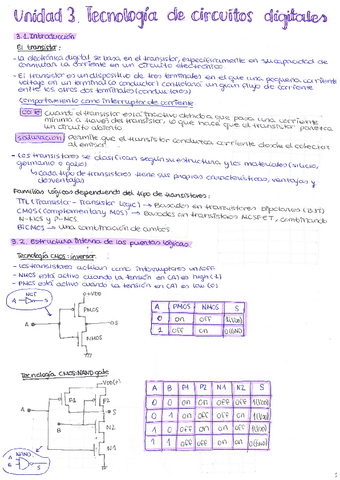 Unidad 3. Tecnología de circuitos digitales
3.1. Introducción
El transistor:
- La electrónica digital se basa en el transistor, específicamente en su capacidad de
conmutar la corriente en un circuito electrónico
- El transistor es un dispositivo de tres terminales en el que una pequeña corriente
voltaje en un terminal (o conductor) controlará un gran flujo de corriente
entre los otros dos terminales (conductores)
Comportamiento como interruptor de corriente
corte cuando el transistor está inactivo debido a que pasa una corriente
mínima a través del transistor, lo que hace que el transistor parezca
un circuito abierto.
saturación permite que el transistor conduzca corriente desde el colector
al emisor.
- Los transistores se clasifican según su estructura y los materiales (silicio,
germanio o galio)
↳ cada tipo de transistores tiene sus propias características, ventajas y
desventajas
Familias lógicas dependiendo del tipo de transistores:
TTL (Transistor-Transistor Logic) → Basados en transistores bipolares (BJT)
CMOS (Complementary MOS) → Basados en transistores MOSFET, combinando
N-MOS y P-MOS.
BiCMOS → una combinación de ambos
3.2. Estructura interna de las puertas lógicas
Tecnología CMOS: inversor
- Los transistores actúan como interruptores on/off
- NMOS está activo cuando la tensión en (A) es high (1)
- PMOS está activo cuando la tensión en (A) es low (0)
NOT
A S
VDD
PMOS
A
S
NMOS
A PMOS NMOS S
0 on off 1(VDD)
1 off on 0(GND)
Tecnología CMOS: NAND gate
VDD
P1 P2
A
S
B N2
N1
NAND
A
B S
A B P1 P2 N1 N2 S
0 0 on on off off 1(VDD)
0 1 on off off on 1(VDD)
1 0 off on on off 1(VDD)
1 1 off off on on 0(GND)